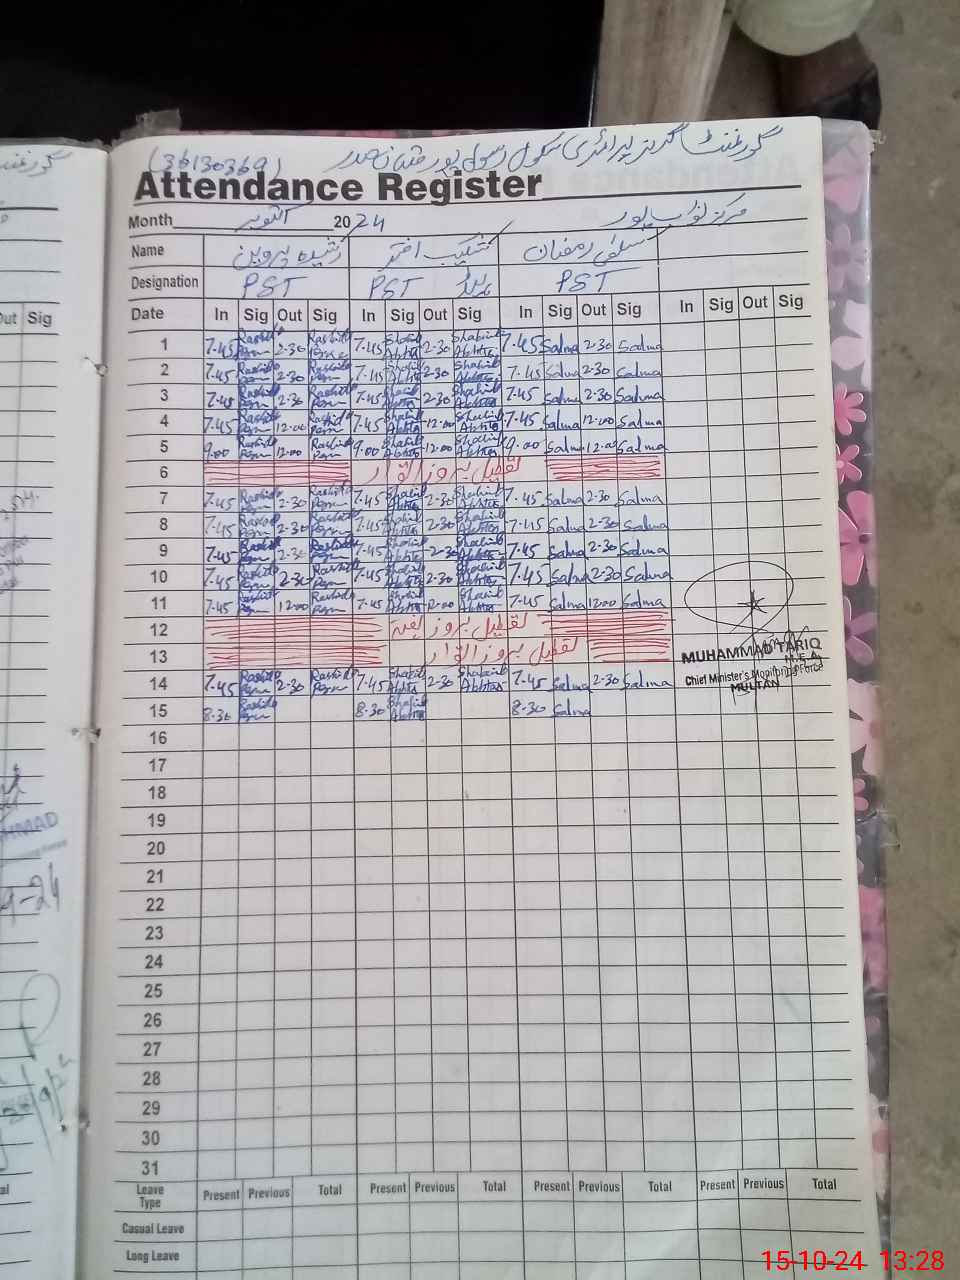 گورنمنٹ گرلز پرائمری سکول رسول پور ملتان صدر (36130369)
Attendance Register
Month اکتوبر 2024 مرکز نواب پور
Name رشیدہ پروین شکیب اختر سلمٰی رمضان
Designation PST PST PST
Date In Sig Out Sig In Sig Out Sig In Sig Out Sig In Sig Out Sig
1 7.45 Rashida 2.30 Rashida 7.45 2.30 7.45 Salma 2.30 Salma
2 7.45 Rashida 2.30 Rashida 7.45 2.30 7.45 Salma 2.30 Salma
3 7.45 Rashida 2.30 Rashida 7.45 2.30 7.45 Salma 2.30 Salma
4 7.45 Rashida 12.00 Rashida 7.45 12.00 7.45 Salma 12.00 Salma
5 9.00 Rashida 12.00 Rashida 9.00 12.00 9.00 Salma 12.00 Salma
6 تعطیل بروز اتوار
7 7.45 Rashida 2.30 Rashida 7.45 2.30 7.45 Salma 2.30 Salma
8 7.45 Rashida 2.30 Rashida 7.45 2.30 7.45 Salma 2.30 Salma
9 7.45 Rashida 2.30 Rashida 7.45 2.30 7.45 Salma 2.30 Salma
10 7.45 Rashida 2.30 Rashida 7.45 2.30 7.45 Salma 2.30 Salma
11 7.45 Rashida 12.00 Rashida 7.45 12.00 7.45 Salma 12.00 Salma
12 تعطیل بروز ہفتہ
13 تعطیل بروز اتوار
MUHAMMAD TARIQ
M.E.A.
Chief Minister's Monitoring Force
MULTAN
14 7.45 Rashida 2.30 Rashida 7.45 2.30 7.45 Salma 2.30 Salma
15 8.30 Rashida 8.30 8.30 Salma
16
17
18
19
20
21
22
23
24
25
26
27
28
29
30
31
Leave Type Present Previous Total Present Previous Total Present Previous Total Present Previous Total
Casual Leave
Long Leave
Out Sig
15-10-24 13:28